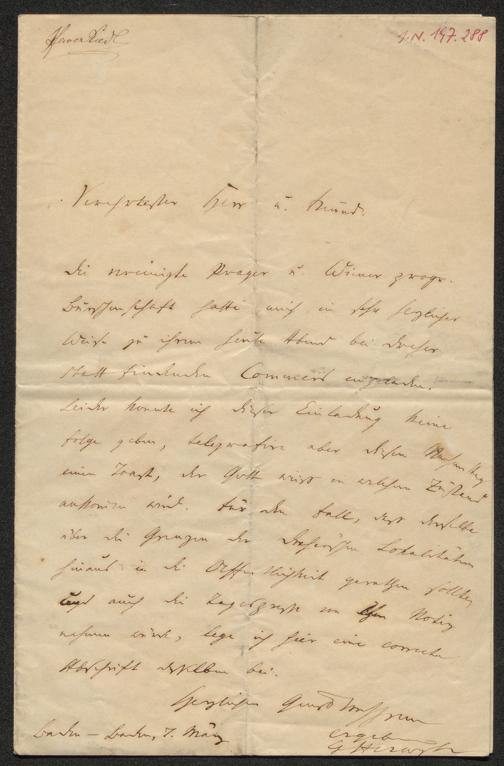 I.N. 197.288
Verehrtester Herr u. Freund.
Die vereinigte Prager u. Wiener progr.
Burschenschaft hatte mich in sehr herzlicher
Weise zu ihrem heute Abend bei Dreher
statt findenden Commers eingeladen.
Leider konnte ich dieser Einladung keine
Folge geben, telegrafire aber diesen Nachmittag
einen Toast, der Gott weiss in welchem Zustand
ankommen wird. Für den Fall, dass derselbe
über die Grenzen der Dreherschen Lokalitäten
hinaus in die Öffentlichkeit gerathen sollte
und auch die Tagespresse von ihm Notiz
nehmen würde, lege ich hier eine correcte
Abschrift desselben bei.
Herzlichen Gruss
ergeben
Baden-Baden, 7. März
G Herwegh